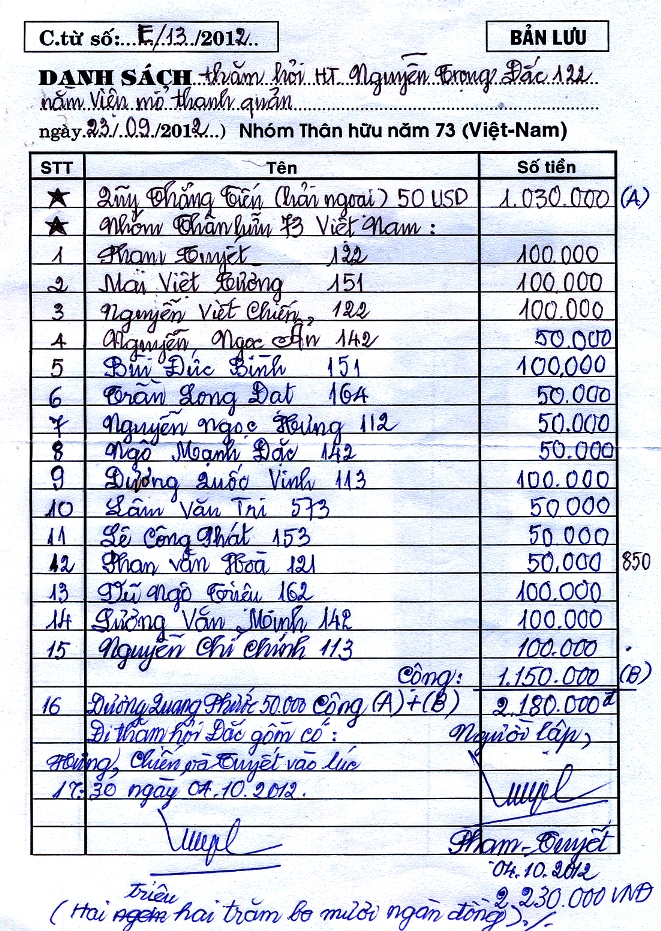 C.từ số: E/13/2012
BẢN LƯU
DANH SÁCH thăm hỏi HT Nguyễn Trọng Đắc 122
nằm viện mổ thanh quản
ngày 23/.09./2012..) Nhóm Thân hữu năm 73 (Việt-Nam)
STT Tên Số tiền
★ Qũy Thắng Tiến (hải ngoại) 50 USD 1.030.000 (A)
★ Nhóm Thân hữu 73 Việt Nam :
1 Phạm Tuyết 122 100.000
2 Mai Việt Tương 151 100,000
3 Nguyễn Viết Chiến, 122 100.000
4 Nguyễn Ngọc Ân 142 50.000
5 Bùi Đức Bình 151 100,000
6 Trần Long Đạt 164 50.000
7 Nguyễn Ngọc Hưng 112 50.000
8 Ngô Mạnh Đắc 142 50.000
9 Dương Quốc Vinh 113 100.000
10 Lâm Văn Trí 573 50.000
11 Lê Công Phát 153 50.000
12 Phan Văn Hoà 121 50,000 850
13 Vũ Ngô Triêu 162 100.000
14 Lương Văn Minh 142 100.000
15 Nguyễn Chí Chính 113 100.000
Cộng: 1.150.000 (B)
16 Dương Quang Phước 50.000 Cộng (A)+(B) 2.180.000đ
Đi thăm hỏi Đắc gồm có : Người lập,
Hưng, Chiến, và Tuyết vào lúc
17:30 ngày 04.10.2012.
Phạm-Tuyết
04.10.2012
2.230.000 VNĐ
triệu
(Hai ngàn hai trăm ba mươi ngàn đồng)./.